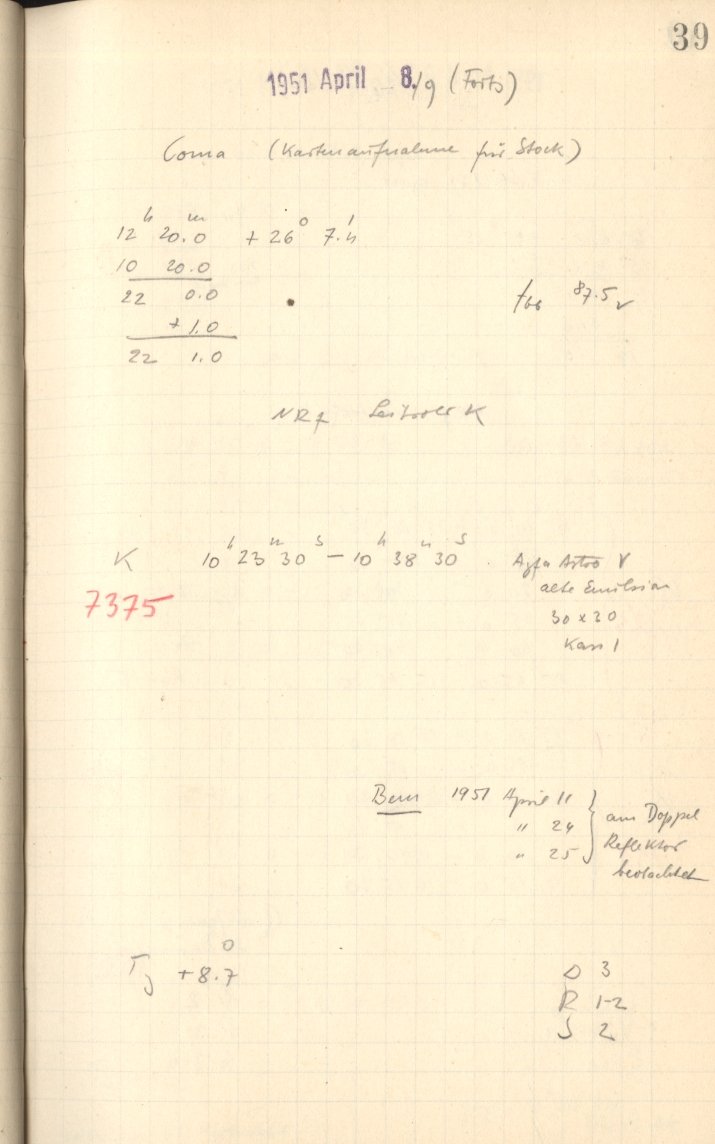 39
1951 April 8./9 (Forts)
Coma (Kartenaufnahme für Stock)
12ʰ 20.0ᵐ + 26° 7.4'
10 20.0
22 0.0
87.5
+ 1.0
22 1.0
K
K 10ʰ 23ᵐ 30ˢ – 10ʰ 38ᵐ 30ˢ Agfa Astro
7375
alte Emulsion
30 x 30
Kass 1
Bem 1951 April 11
" 24
" 25
am Doppel
Reflektor
beobachtet
+8.7°
3
R 1-2
2